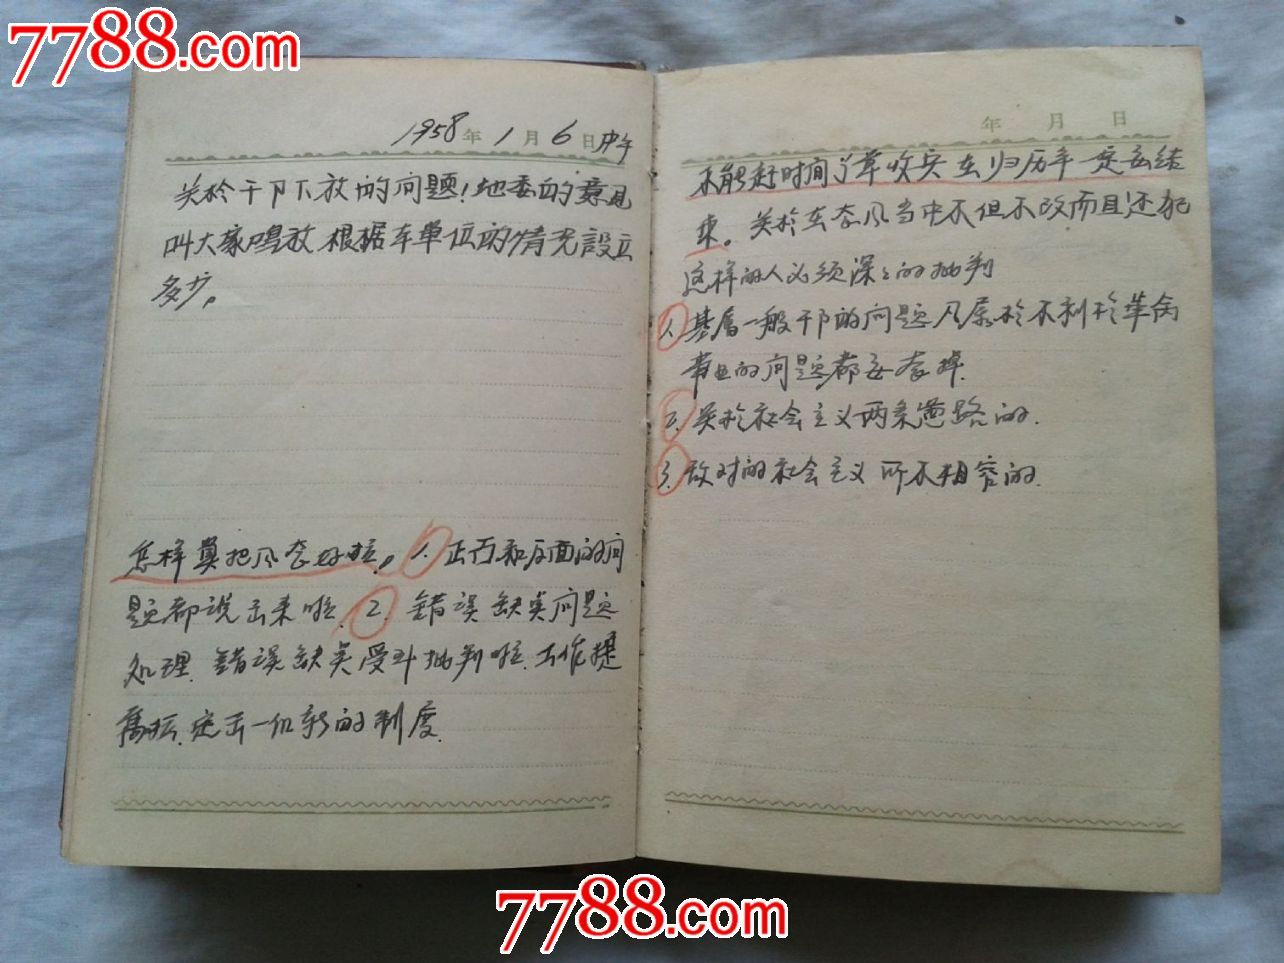 7788.com
1958年1月6日中午
关於干下放的问题!地委的意见
叫大家鸣放根据车单位的情况設立
多少。
怎样算把风套好啦。1.正面和反面的问
题都说出来啦.2.错误缺点问题
处理.错误缺点受斗批判啦.工作提
高啦.定出一个新的制度.
年 月 日
不能赶时间了草收兵 结
束。关於 风当中不但不改而且还犯
这样的人必须深々的批判
1.基层一般干部的问题凡属於不利於革
事业的问题都要 掉.
2.关於社会主义两条道路的.
3.敌对的社会主义所不相容的.
7788.com